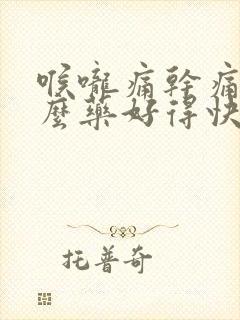 喉嚨痛幹痛
麼藥好得快
托普奇